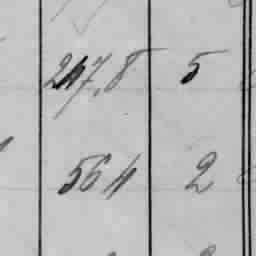 247.8 5
564 2